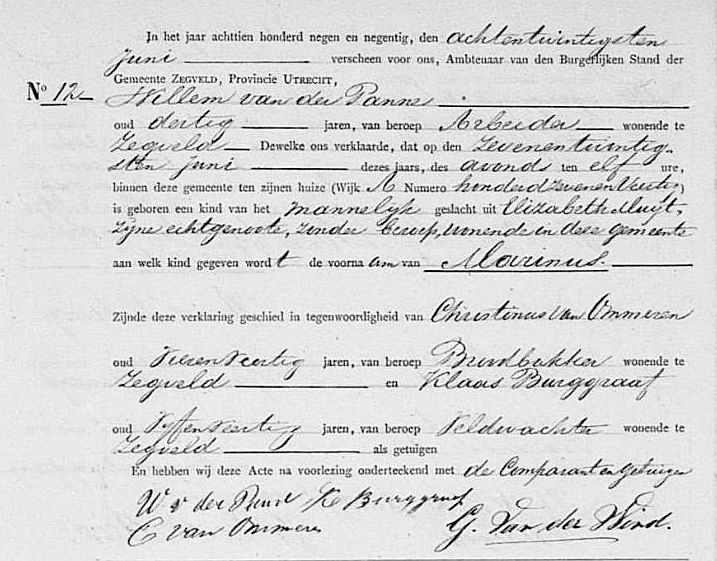 In het jaar achttien honderd negen en negentig, den achtentwintigsten
Juni verscheen voor ons, Ambtenaar van den Burgerlijken Stand der
Gemeente ZEGVELD, Provincie UTRECHT,
No 12 Willem van der Panne
oud dertig jaren, van beroep Arbeider wonende te
Zegveld Dewelke ons verklaarde, dat op den zevenentwintig-
sten Juni dezes jaars, des avonds ten elf ure,
binnen deze gemeente ten zijnen huize (Wijk A Numero honderdzevenenveertig)
is geboren een kind van het mannelijk geslacht uit Elizabeth Muijt,
zijne echtgenoote, zonder beroep, wonende in deze gemeente
aan welk kind gegeven wordt de voornaam van Marinus.
Zijnde deze verklaring geschied in tegenwoordigheid van Christinus van Ommeren
oud vierenveertig jaren, van beroep Broodbakker wonende te
Zegveld en Klaas Burggraaf
oud vijfenveertig jaren, van beroep Veldwachter wonende te
Zegveld als getuigen
En hebben wij deze Acte na voorlezing onderteekend met de Comparant en getuigen
W v der Pann K Burggraaf
C van Ommeren G. Van der Wind.